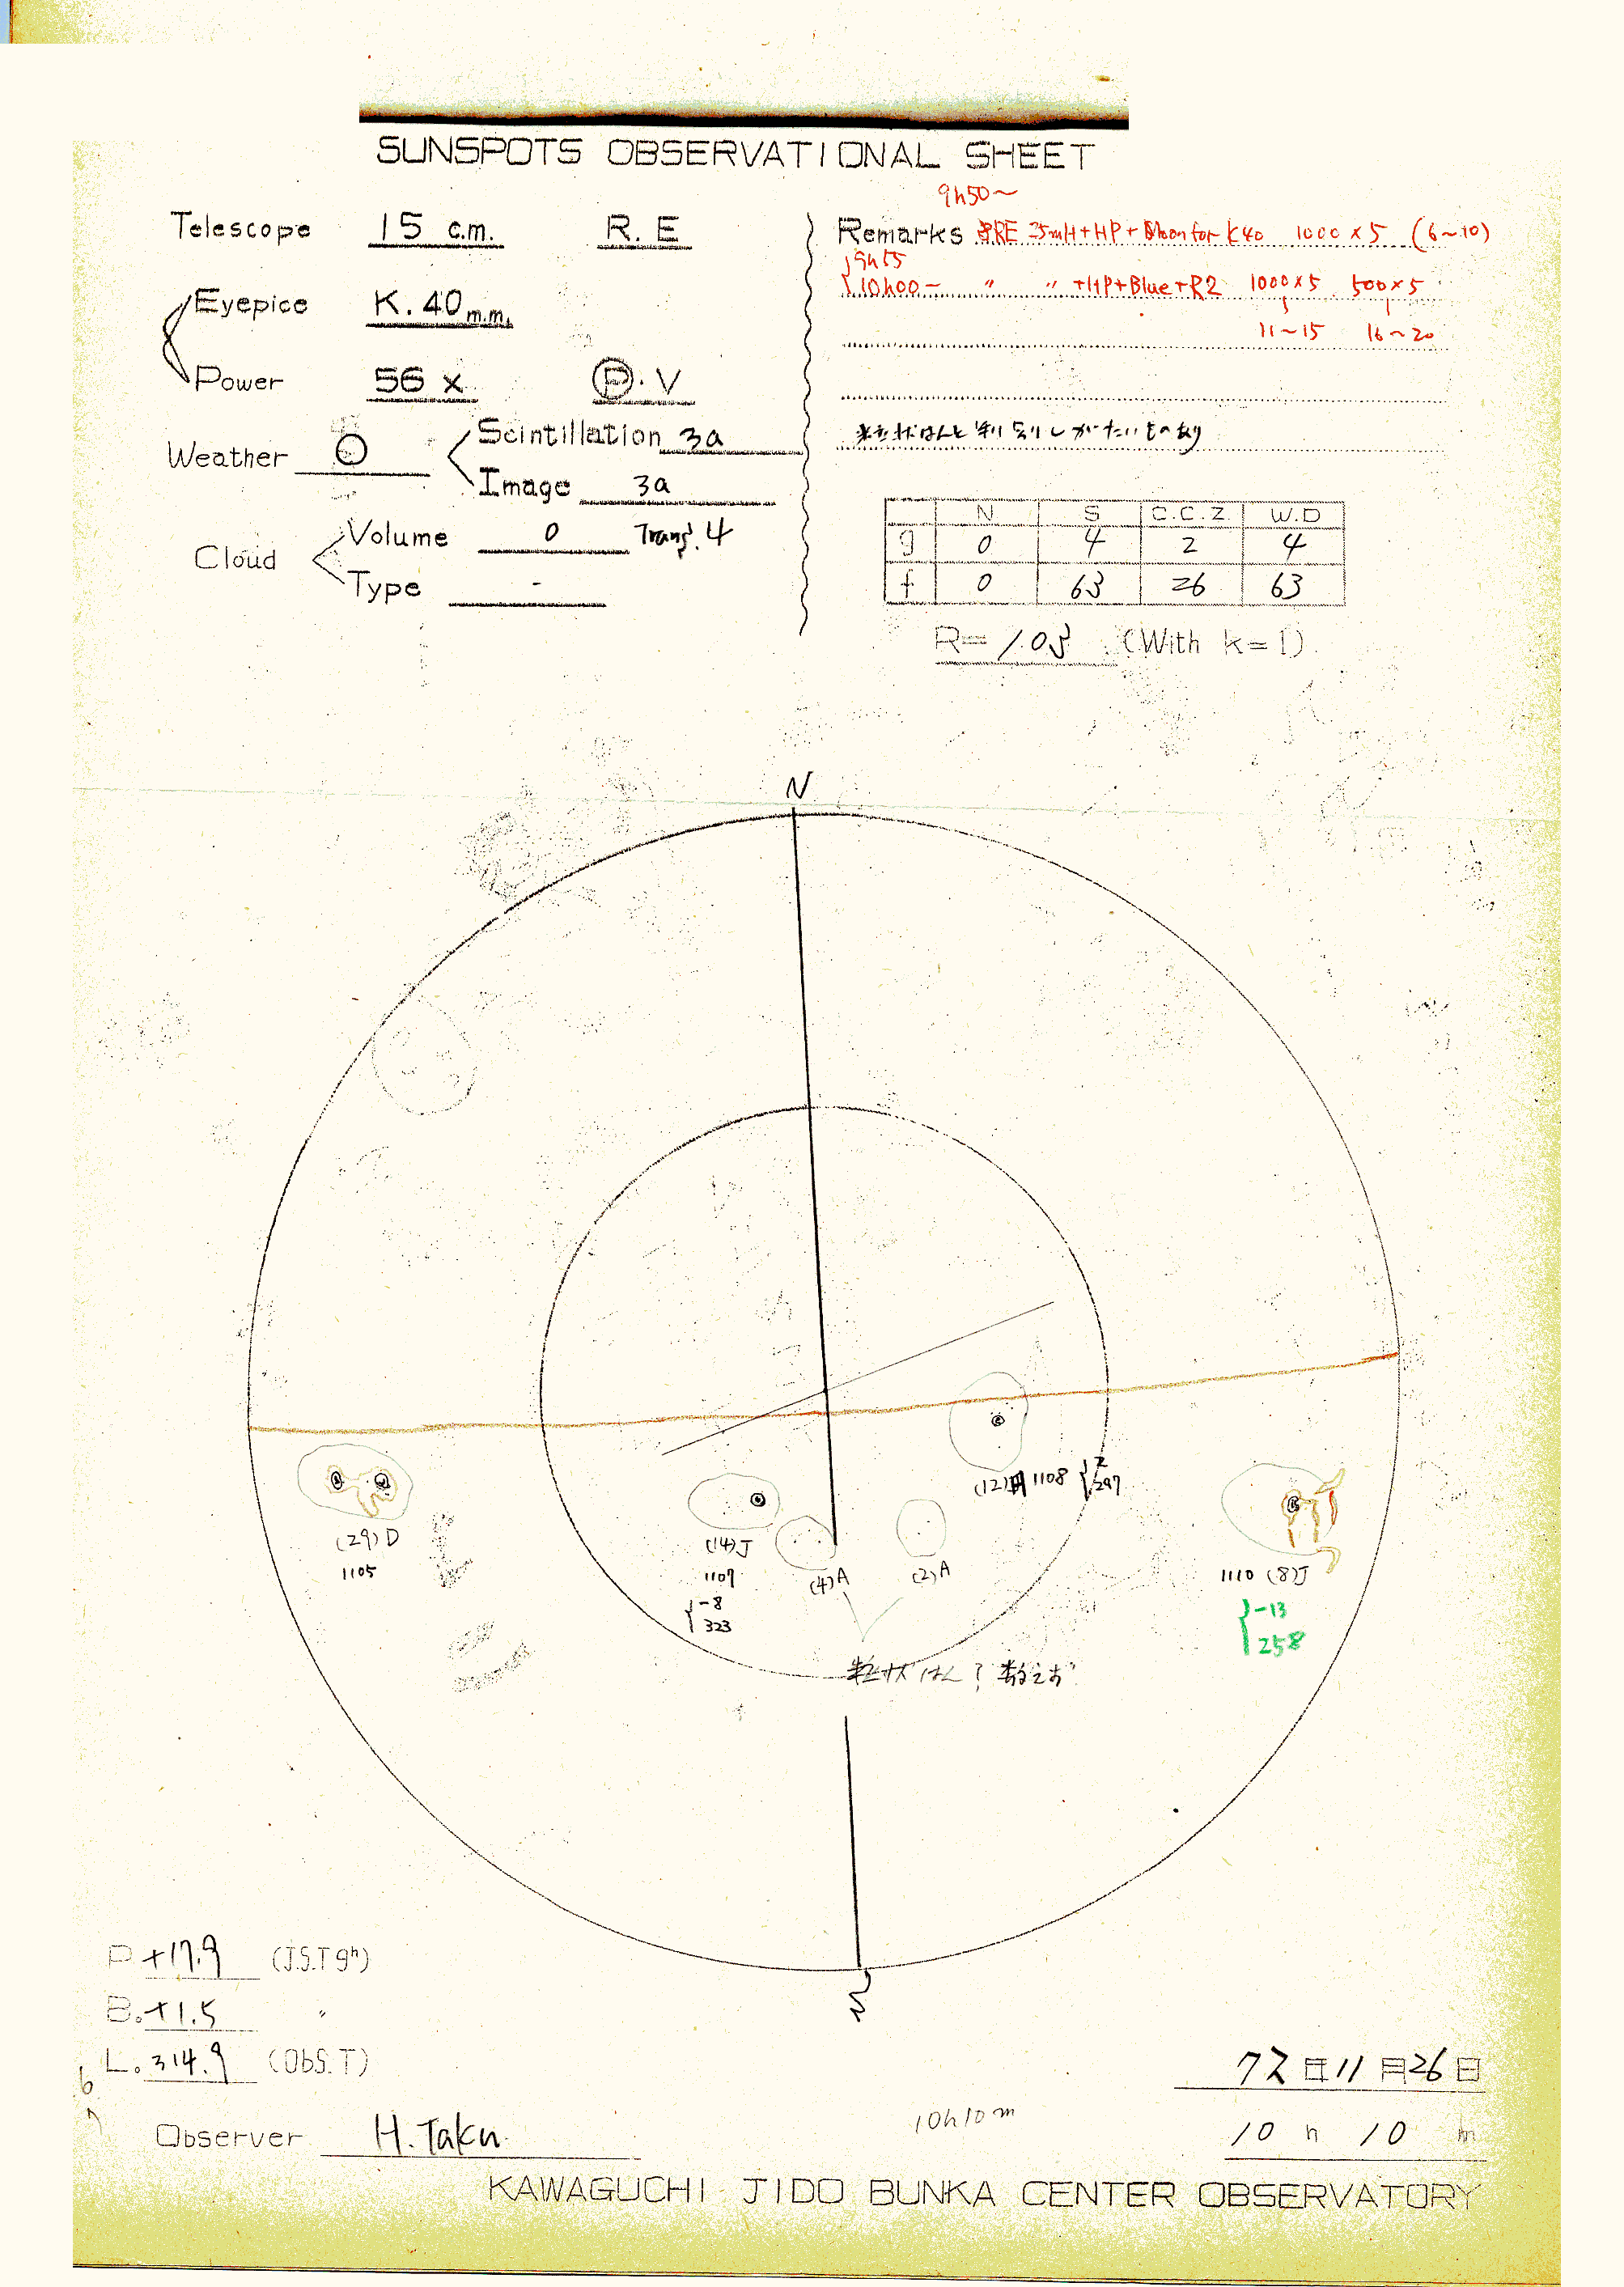 SUNSPOTS OBSERVATIONAL SHEET
Telescope 15 c.m. R. E
Eyepice K. 40 m.m.
Power 56 x Ⓟ. V
Weather ○
Scintillation 3a
Image 3a
Cloud
Volume 0 4
Type -
9h50~
Remarks 1000 × 5 (6~10)
9h55
10h00~ 〃 〃 +HP+Blue+R2 1000×5 500×5
11~15 16~20
粒状はんと判別しがたいものあり
N S C.C.Z. W.D
g 0 4 2 4
f 0 63 26 63
R= 103 (With k=1)
N
(12) 1108 297
(29)D
1105
(14)J
1107
-8
323
(4)A
(2)A
粒状はん? 数えず
1110 (8)J
-13
258
S
P +17.9 (J.S.T 9h)
B. +1.5 〃
L. 314.9 (Obs.T)
72 年 11 月 26 日
10h10m
10 h 10 m
Observer H. Taku
KAWAGUCHI JIDO BUNKA CENTER OBSERVATORY